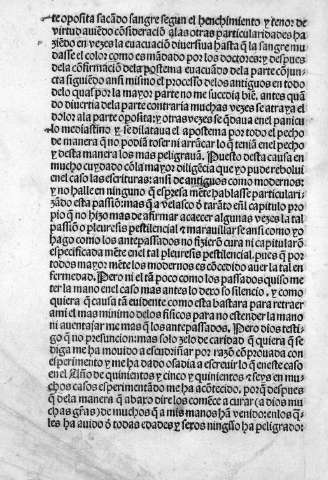 te oposita sacãdo sangre segun el henchimiento y tenor de
virtud auiẽdo cõsideraciõ a las otras particularidades ha
ziẽdo en vezes la euacuaciõ diuersiua hasta q̃ la sangre mu
dasse el color como es mãdado por los doctores: y despues
dela cõfirmaciõ dela postema euacuãdo dela parte cõjun
cta siguiẽdo ansi mismo el processo delos antiguos en todo
delo qual por la mayor parte no me sucedia biẽ. antes quã
do diuertia dela parte contraria muchas vezes se atraya el
dolor ala parte oposita: y otras vezes se q̃daua enel panicu
lo mediastino y se dilataua el apostema por todo el pecho
de manera q̃ no podiã toser ni arrãcar lo q̃ teniã enel pecho
y desta manera los mas peligrauã. Puesto desta causa en
mucho cuydado cõla mayor diligẽcia que yo pude reboluí
enel caso las escrituras: ansi de antiguos como modernos:
y no halle en ninguno q̃ espressa mẽte hablasse particulari-
zãdo esta passiõ: mas q̃ a velasco õ tarãto enl capitulo pro
pio q̃ no hizo mas de afirmar acaecer algunas vezes la tal
passiõ o pleuresis pestilencial z marauillar se ansi como yo
hago como los antepassados no fiziẽrõ cura ni capitularõ
especificada mẽte enel tal pleuresis pestilencial. pues q̃ por
todos mayor mẽte los modernos es cõcedido auer la tal en
fermedad. Pero ni el tã poco como los passados quiso me
ter la mano enel caso mas antes lo dexo so silencio, y como
quiera q̃ causa tã euidente como esta bastara para retraer
ami el mas minimo delos fisicos para no estender la mano
ni auentajar me mas q̃ los antepassados. Pero dios testi-
go q̃ no presuncion: mas solo zelo de caridad q̃ quiera q̃ se
diga me ha mouido a escudriñar por razõ cõprouada con
experimento y me ha dado osadia a escreuir lo q̃ eneste caso
en el Año de quinientos y cinco y quinientos z seys en mu
chos casos esperimentãdo me ha acõtecido, porq̃ despues
q̃ dela manera q̃ abaxo dire los comẽce a curar (a dios mu
chas gr̃as) de muchos q̃ a mis manos hã venido: en los q̃-
les ha auido õ todas edades y sexos ninguno ha peligrado: